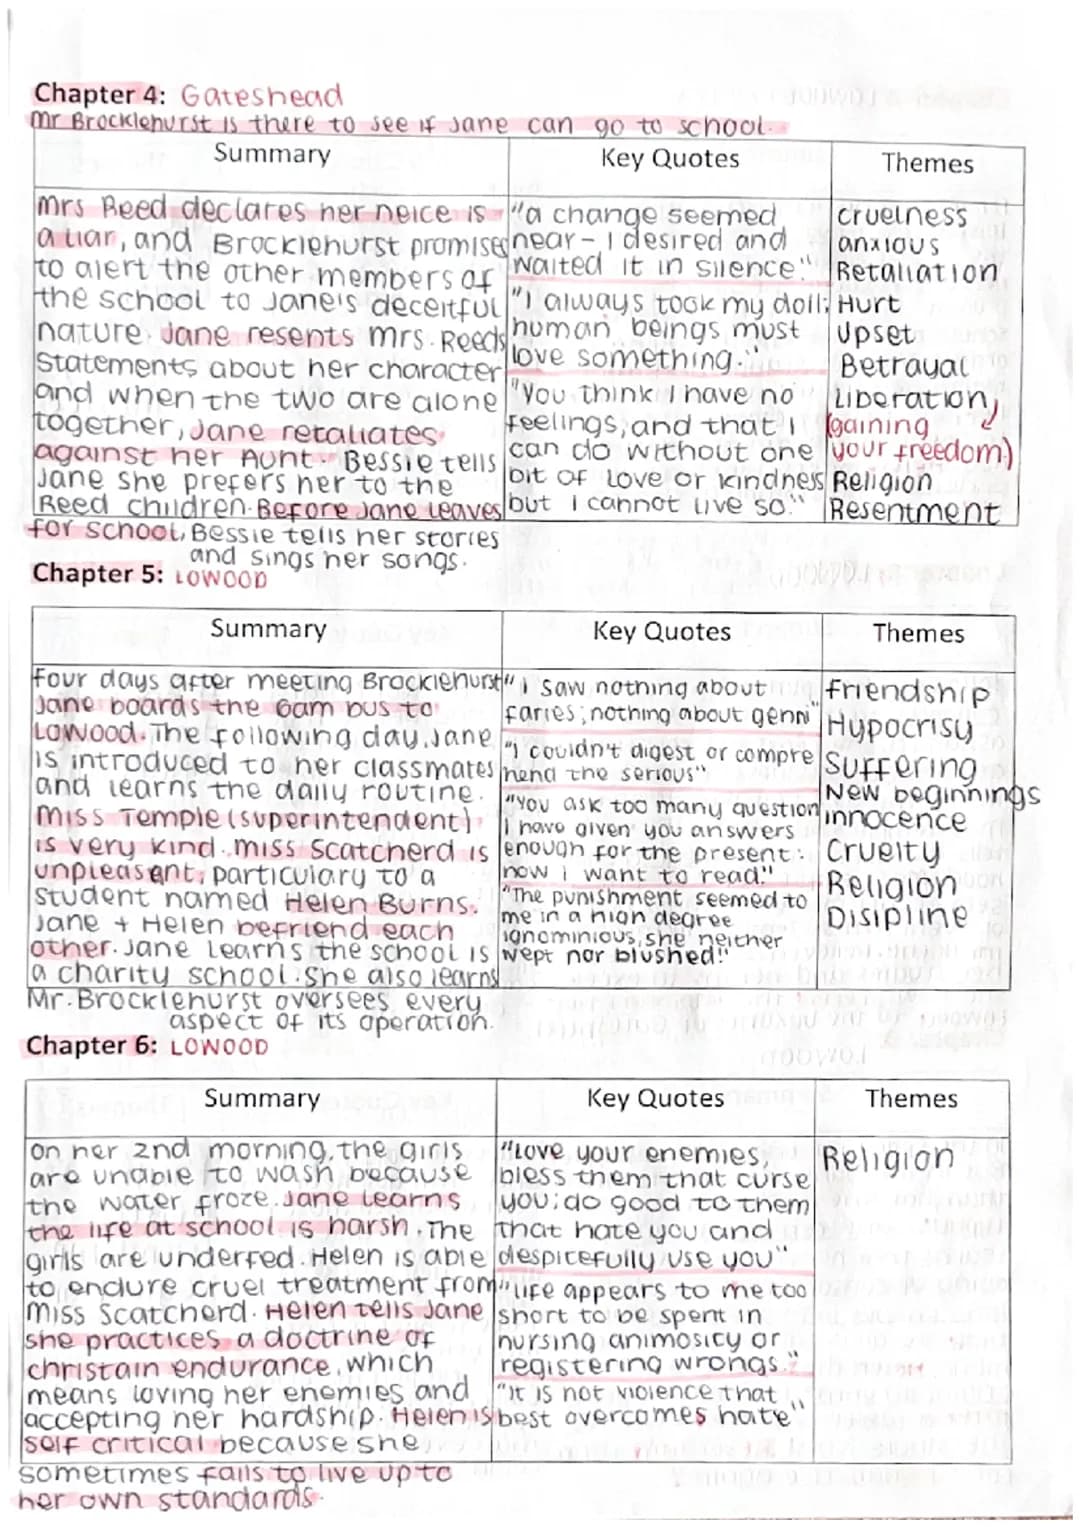 Chapter 4: Gateshead
Mr Brocklehurst is there to see if Jane can go to school.
Summary
Key Quotes
Themes
Mrs Reed declares her neice is
a liar, and Brocklehurst promises
to alert the other members of
the school to Jane's deceitful
nature. Jane resents Mrs. Reeds
Statements about her character
and when the two are alone
together, Jane retaliates
against her Aunt. Bessie tells
Jane she prefers her to the
Reed children. Before Jane leaves
for school, Bessie tells her stories
and sings her songs.
"a change seemed
near - I desired and
waited it in silence."
"I always took my doll;
human beings must
love something."
"You think I have no
feelings, and that I
can do without one
bit of love or kindness
but I cannot live so."
cruelness
anxious
Retaliation
Hurt
Upset
Betrayal
Liberation
(gaining
your freedom)
Religion
Resentment
Chapter 5: LOWOOD
Summary
Key Quotes
Themes
Four days after meeting Brocklehurst
Jane boards the 6am bus to
Lowood. The following day, Jane
is introduced to her classmates
and learns the daily routine.
Miss Temple (superintendent)
is very kind. Miss Scatcherd is
unpleasant, particulary to a
student named Helen Burns.
Jane + Helen befriend each
other. Jane learns the school is
a charity school. She also learns
Mr. Brocklehurst oversees every
aspect of its operation.
"I saw nothing about
faries; nothing about genni"
"I couldn't digest or compre
hend the serious"
"You ask too many question
I have given you answers
enough for the present:
now I want to read."
"The punishment seemed to
me in a high degree
ignominious, she neither
wept nor blushed!"
friendship
Hypocrisy
Suffering
New beginnings
innocence
Cruelty
Religion
Disipline
Chapter 6: LOWOOD
Summary
Key Quotes
Themes
On her 2nd morning, the girls
are unable to wash because
the water froze. Jane learns
the life at school is harsh. The
girls are underfed. Helen is able
to endure cruel treatment from
Miss Scatcherd. Helen tells Jane
she practices a doctrine of
christain endurance, which
means loving her enemies and
accepting her hardship. Helen is
self critical because she
sometimes fails to live up to
her own standards.
"Love your enemies,
bless them that curse
you; do good to them
that hate you and
despitefully use you"
"life appears to me too
short to be spent in
nursing animosity or
registering wrongs."
"It is not violence that
best overcomes hate"
Religion